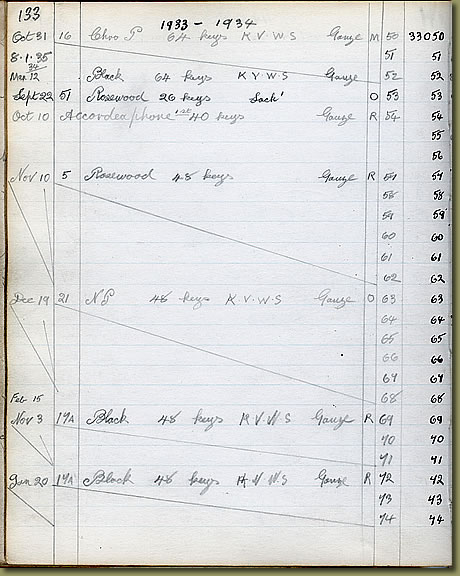 133
1933 - 1934
Oct 31 16 Chro P 64 keys K.V.W.S Gauze M 50 33050
8.1.35 51 51
34
Mar 12 Black 64 keys K.V.W.S Gauze 52 52
Sept 22 51 Rosewood 26 keys Sack' O 53 53
Oct 10 Accordeaphone 1st 40 keys Gauze R 54 54
55
56
Nov 10 5 Rosewood 48 keys Gauze R 57 57
58 58
59 59
60 60
61 61
62 62
Dec 19 21 N.P 48 keys K.V.W.S Gauze O 63 63
64 64
65 65
66 66
67 67
Feb 15 68 68
Nov 3 17A Black 48 keys K.V.W.S Gauze R 69 69
70 70
71 71
Jan 20 17A Black 48 keys K.V.W.S Gauze R 72 72
73 73
74 74